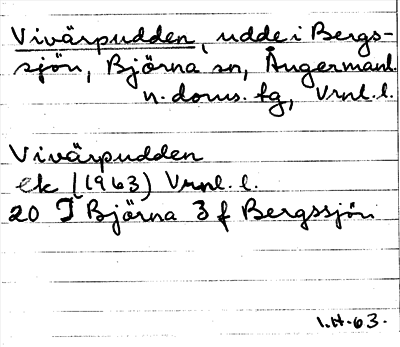 Vivärpudden, udde i Bergs-
sjön, Björna sn, Ångermanl.
n. doms. tg, Vrnl. l.
Vivärpudden
ek (1963) Vrnl. l.
20 I Björna 3 f Bergssjön
I.H. 63.